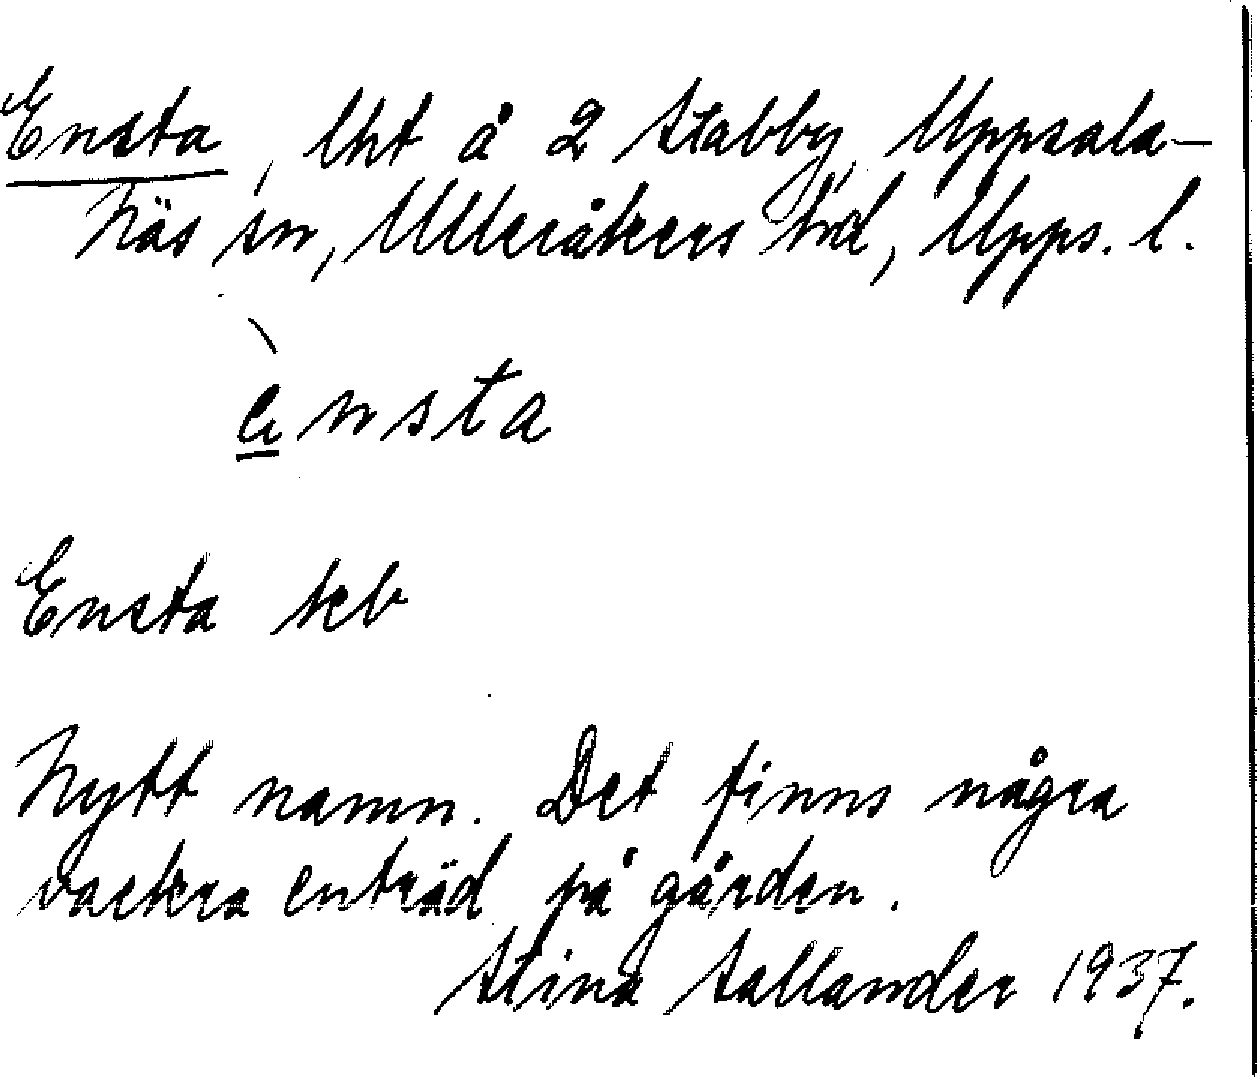 Ensta, lht å 2 Stabby, Uppsala-
Näs sn, Ulleråkers hd, Upps. l.
ènsta
Ensta keb
Nytt namn. Det finns några
vackra enträd på gården.
Stina Sallander 1937.